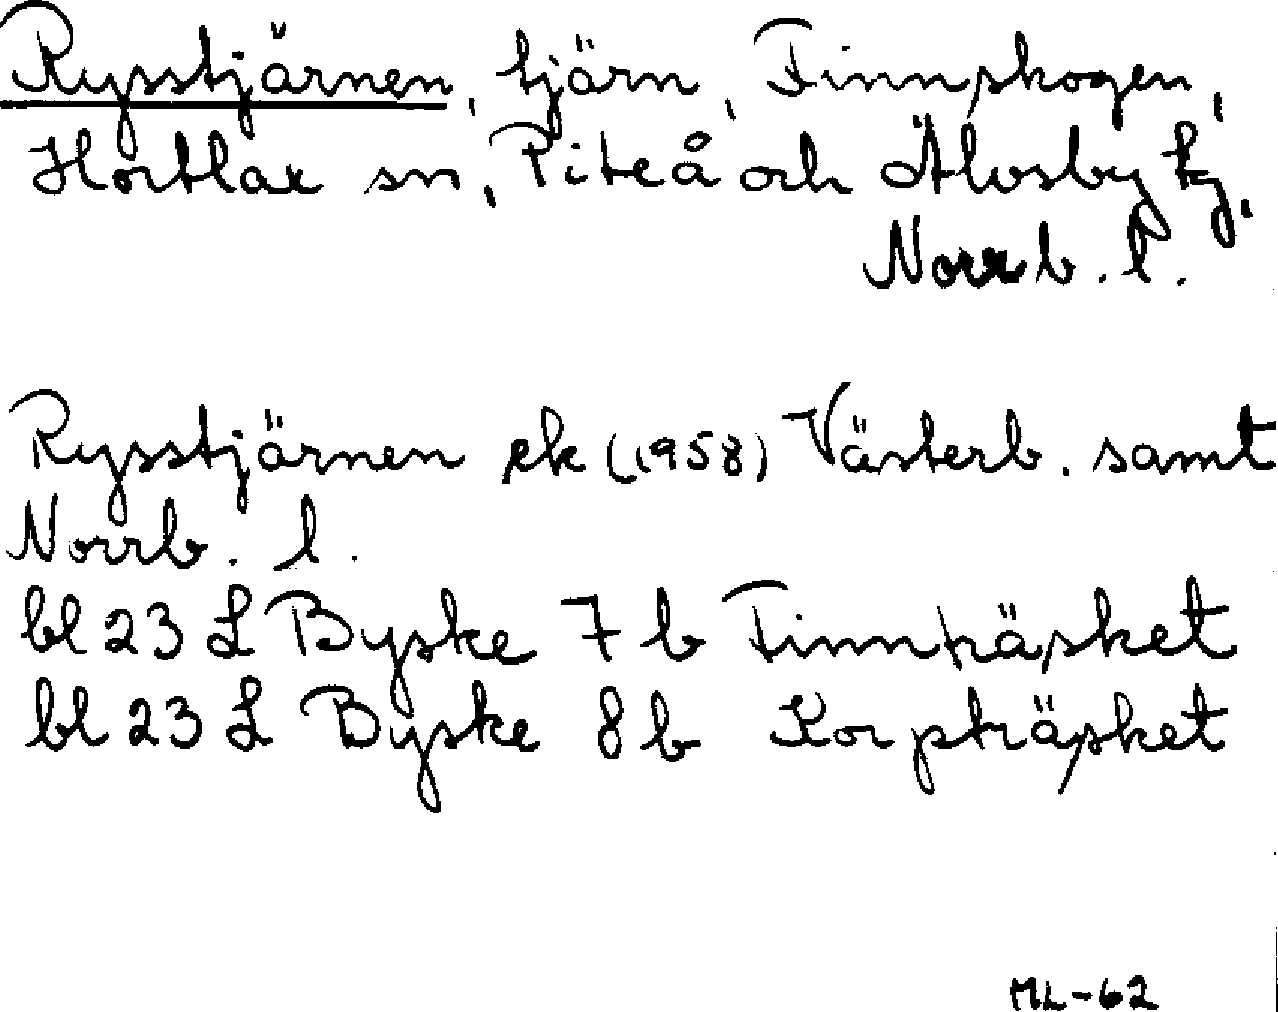 Rysstjärnen, tjärn, Finnskogen,
Hortlax sn, Piteå och Älvsby tg,
Norrb. l.
Rysstjärnen ek (1958) Västerb. samt
Norrb. l.
bl 23 L Byske 7 b Finnträsket
bl 23 L Byske 8 b Korpträsket
ML-62